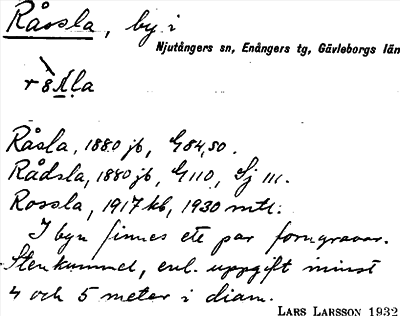 Råssla, by i
Njutångers sn, Enångers tg, Gävleborgs län
Råsla, 1880 jb, G 84,50.
Rådsla, 1880 jb, G 110, Sj 111.
Rossla, 1917 kb, 1930 mtl.
I byn finnes ett par forngravar.
Stenkummel, enl. uppgift minst
4 och 5 meter i diam.
LARS LARSSON 1932